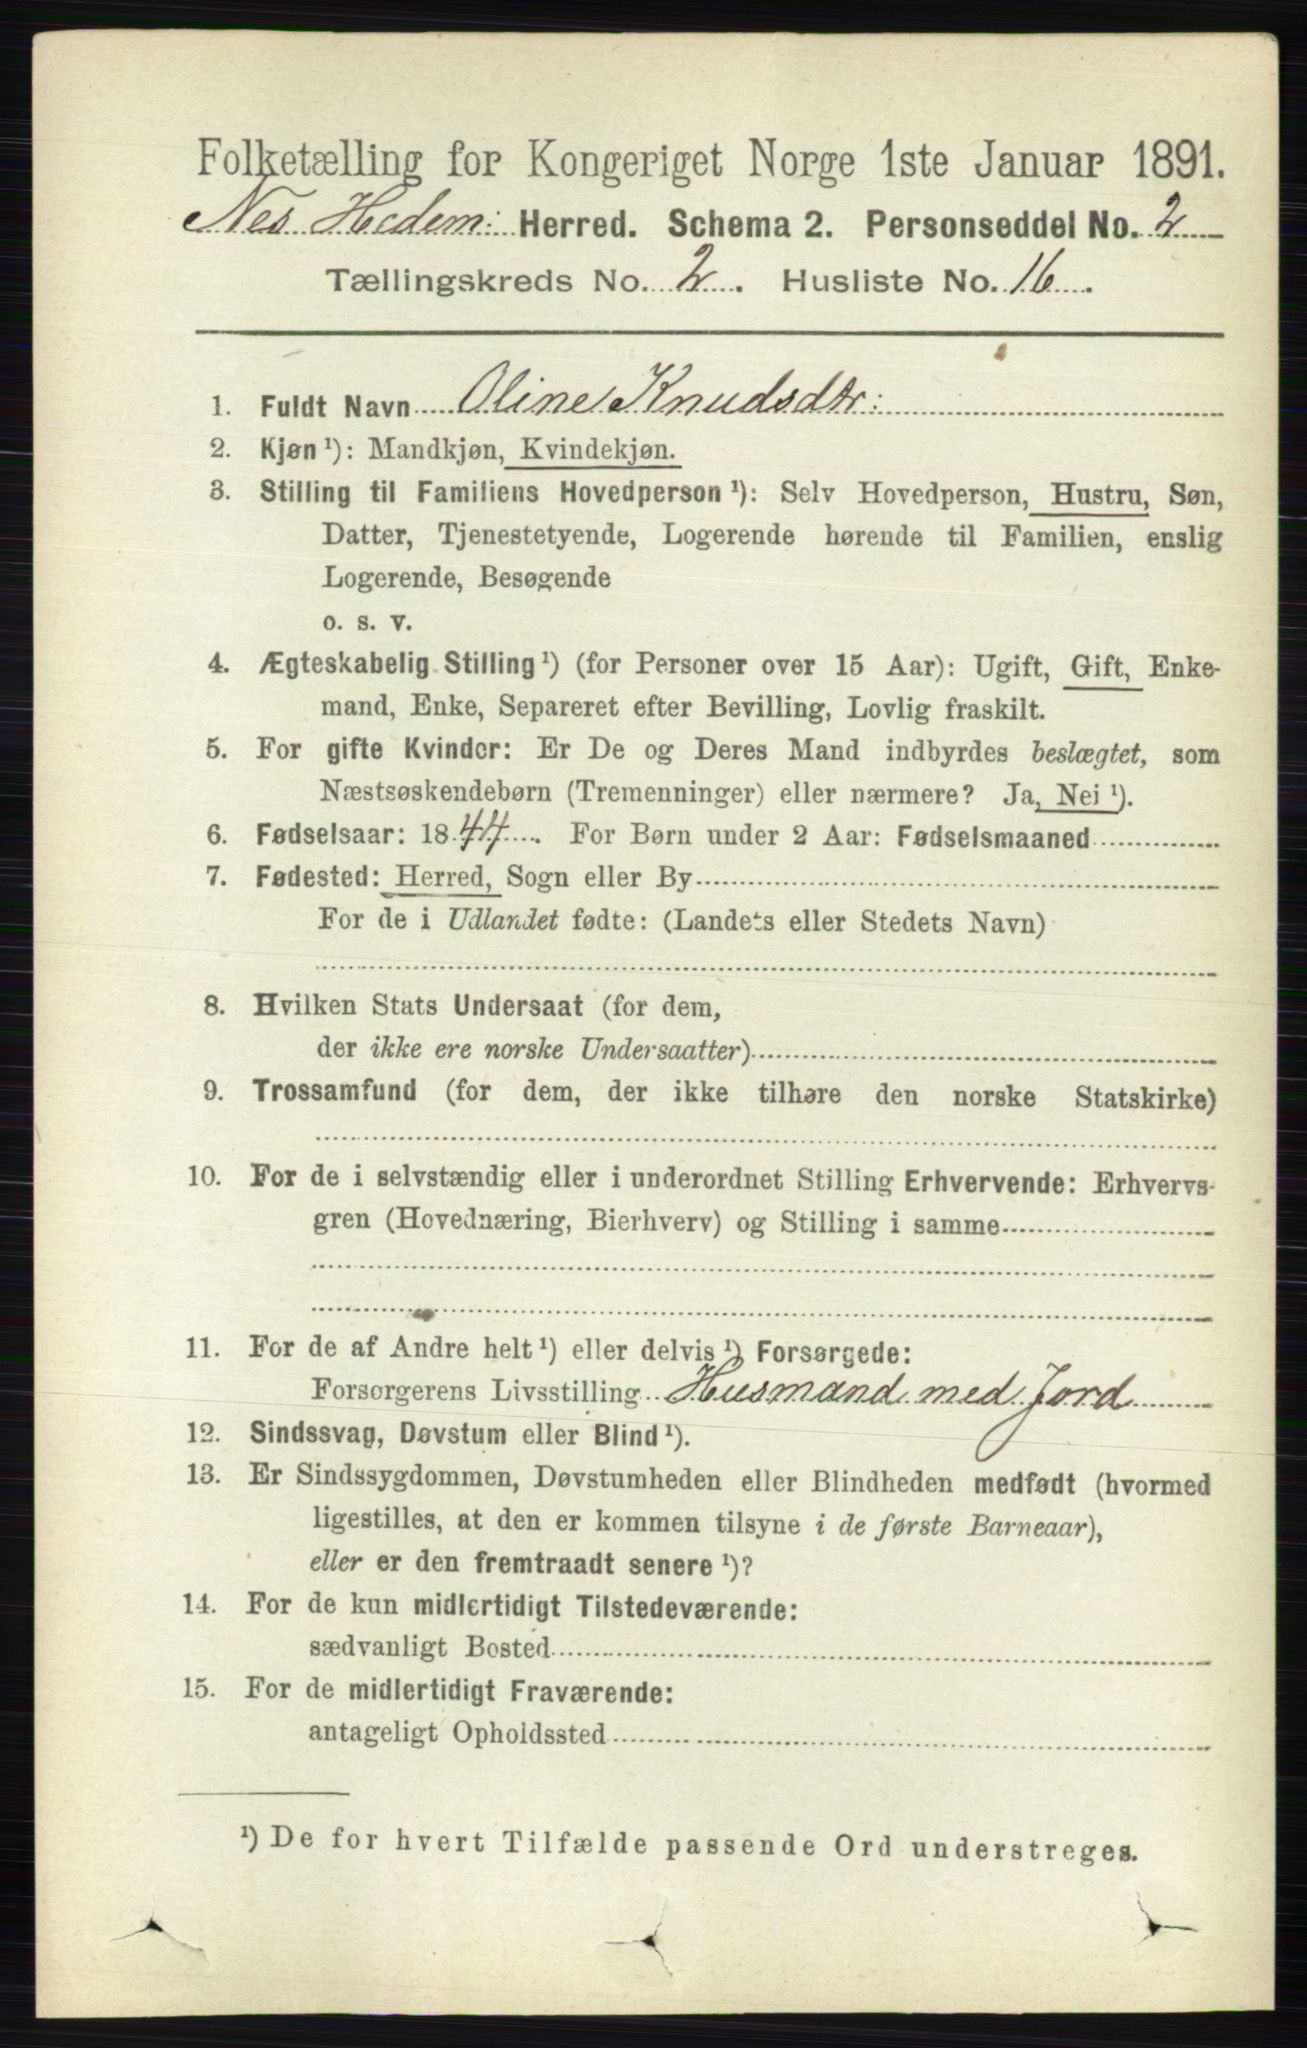 Folketælling for Kongeriget Norge 1ste Januar 1891.
Nes Hedem: Herred. Schema 2. Personseddel No. 2
Tællingskreds No. 2. Husliste No. 16.
1. Fuldt Navn Oline Knudsdtr:
2. Kjøn ¹): Mandkjøn, Kvindekjøn.
3. Stilling til Familiens Hovedperson ¹): Selv Hovedperson, Hustru, Søn,
Datter, Tjenestetyende, Logerende hørende til Familien, enslig
Logerende, Besøgende
o. s. v.
4. Ægteskabelig Stilling ¹) (for Personer over 15 Aar): Ugift, Gift, Enke-
mand, Enke, Separeret efter Bevilling, Lovlig fraskilt.
5. For gifte Kvinder: Er De og Deres Mand indbyrdes beslægtet, som
Næstsøskendebørn (Tremenninger) eller nærmere? Ja, Nei ¹).
6. Fødselsaar: 1844. For Børn under 2 Aar: Fødselsmaaned
7. Fødested: Herred, Sogn eller By
For de i Udlandet fødte: (Landets eller Stedets Navn)
8. Hvilken Stats Undersaat (for dem,
der ikke ere norske Undersaatter)
9. Trossamfund (for dem, der ikke tilhøre den norske Statskirke)
10. For de i selvstændig eller i underordnet Stilling Erhvervende: Erhvervs-
gren (Hovednæring, Bierhverv) og Stilling i samme
11. For de af Andre helt ¹) eller delvis ¹) Forsørgede:
Forsørgerens Livsstilling Husmand med Jord
12. Sindssvag, Døvstum eller Blind ¹).
13. Er Sindssygdommen, Døvstumheden eller Blindheden medfødt (hvormed
ligestilles, at den er kommen tilsyne i de første Barneaar),
eller er den fremtraadt senere ¹)?
14. For de kun midlertidigt Tilstedeværende:
sædvanligt Bosted
15. For de midlertidigt Fraværende:
antageligt Opholdssted
¹) De for hvert Tilfælde passende Ord understreges.